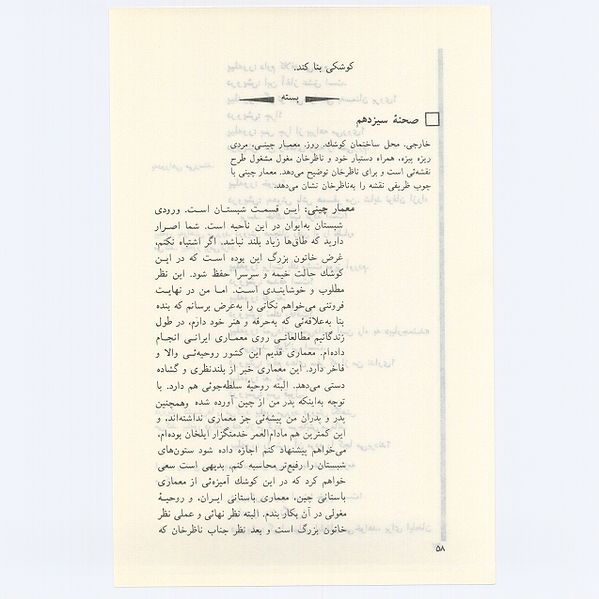 کوشکی بنا کند.
بسته
صحنهٔ سیزدهم
خارجی. محل ساختمان کوشك. روز. معمـار چینـی، مردی
ریزه بیزه، همراه دستیار خود و ناظرخان مغول مشغول طرح
نقشه‌ئی است و برای ناظرخان توضیح می‌دهد. معمار چینی با
چوب ظریفی نقشه را به‌ناظرخان نشان می‌دهد.
معمار چینی: ایـن قسمـت شبستـان اسـت. ورودی
شبستان به‌ایوان در این ناحیه است. شما اصـرار
دارید که طاق‌ها زیاد بلند نباشد. اگر اشتباه نکنم،
غرض خاتون بزرگ این بوده اسـت که در ایـن
کوشك حالت خیمه و سرسرا حفظ شود. این نظر
مطلوب و خوشایندی اسـت. امـا من در نهایـت
فروتنی می‌خواهم نکاتی را به‌عرض برسانم که بنده
بنا به‌علاقه‌ئی که به‌حرفه و هنر خود دارم، در طول
زندگانیم مطالعاتـی روی معمـاری ایرانـی انجـام
داده‌ام. معماری قدیم این کشور روحیه‌ئـی والا و
فاخر دارد. این معماری خبر از بلندنظری و گشاده
دستی می‌دهد. البته روحیهٔ سلطه‌جوئی هم دارد. با
توجه به‌اینکه پدر من از چین آورده شده وهمچنین
پدر و پدران من پیشه‌ئی جز معماری نداشته‌اند، و
این کمترین هم مادام‌العمر خدمتگزار ایلخان بوده‌ام،
می‌خواهم پیشنهاد کنم اجازه داده شود ستون‌های
شبستان را رفیع‌تر محاسبه کنم. بدیهی است سعی
خواهم کرد که در این کوشك آمیزه‌ئی از معماری
باستانی چین، معماری باستانی ایـران، و روحیـهٔ
مغولی در آن بکار بندم. البته نظر نهائی و عملی نظر
خاتون بزرگ است و بعد نظر جناب ناظرخان که
۵۸